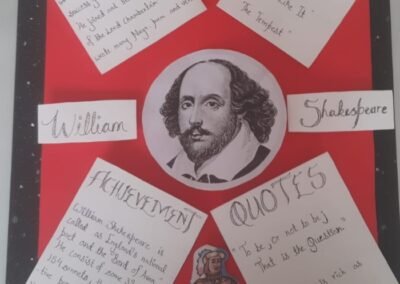 He joined
of the Lord Chamberlain
wrote many Plays, Poem and
Like It"
"The Tempest"
William
Shakespeare
ACHIEVEMENT
William Shakespeare is
called as England's national
poet and the "Bard of Avon"
He consist of some
154 sonnets,
QUOTES
"To be, or not to be,
That is the Question"
is rich as